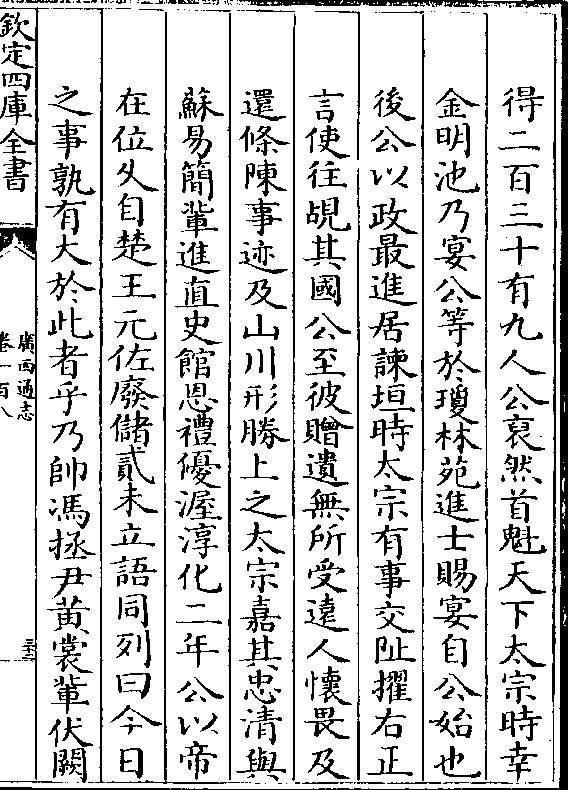 得二百三十有九人公裒然首魁天下太宗時幸
金明池乃宴公等於瓊林苑進士賜宴自公始也
後公以政最進居諫垣時太宗有事交阯擢右正
言使往覘其國公至彼贈遺無所受遠人懷畏及
還條陳事迹及山川形勝上之太宗嘉其忠清與
蘇易簡輩進直史館恩禮優渥淳化二年公以帝
在位久自楚王元佐廢儲貳未立語同列曰今日
之事孰有大於此者乎乃帥馮拯尹黃裳輩伏闕
欽定四庫全書
廣西通志
卷一百八